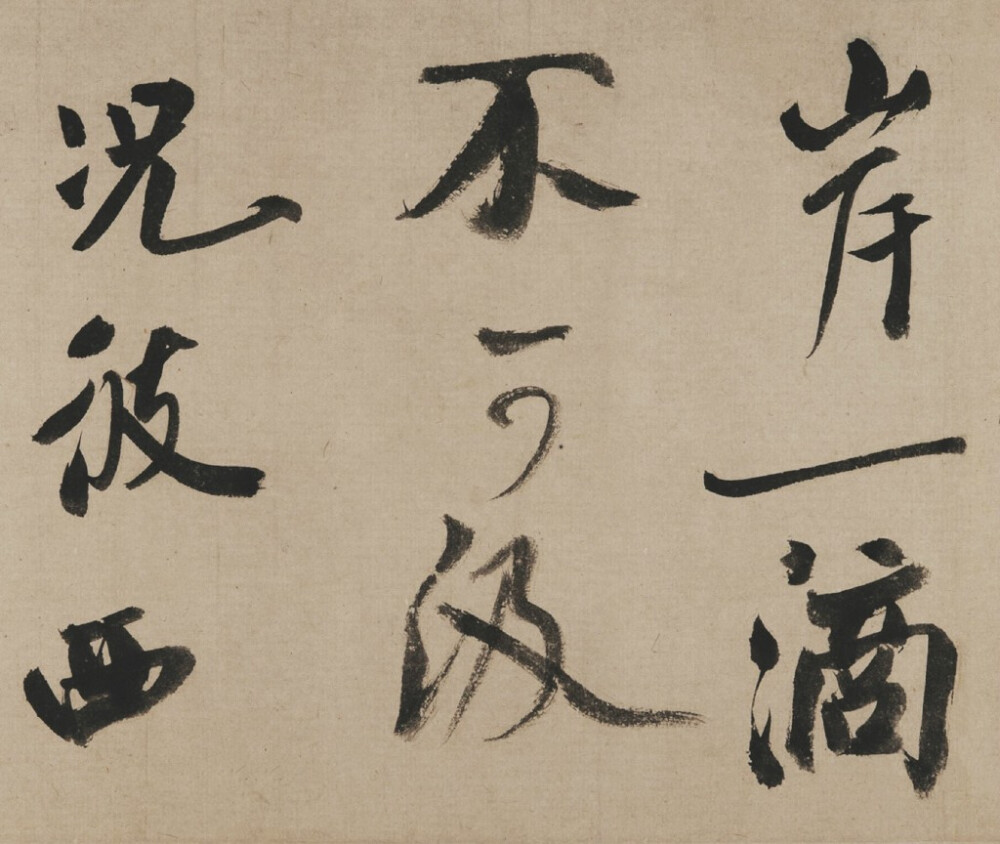 岸一滴
不可汲
况彼西